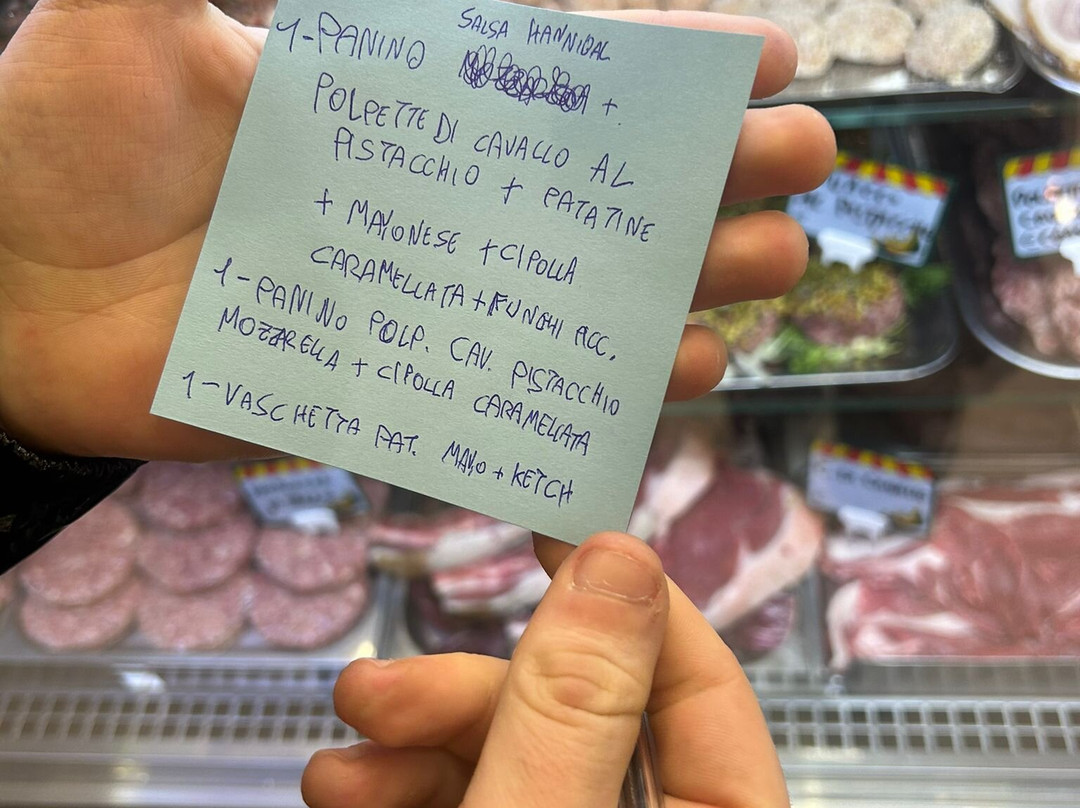 SALSA HANNIBAL
1-PANINO +
POLPETTE DI CAVALLO AL
PISTACCHIO + PATATINE
+ MAYONESE + CIPOLLA
CARAMELLATA + FUNGHI ACC.
1-PANINO POLP. CAV. PISTACCHIO
MOZZARELLA + CIPOLLA CARAMELLATA
1-VASCHETTA PAT. MAYO + KETCH